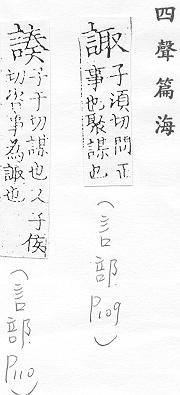 四聲篇海
諏
子湏切問正
事也聚謀也
(言部 P109)
子于切謀也又子侯
切咨事為諏也
(言部 P110)